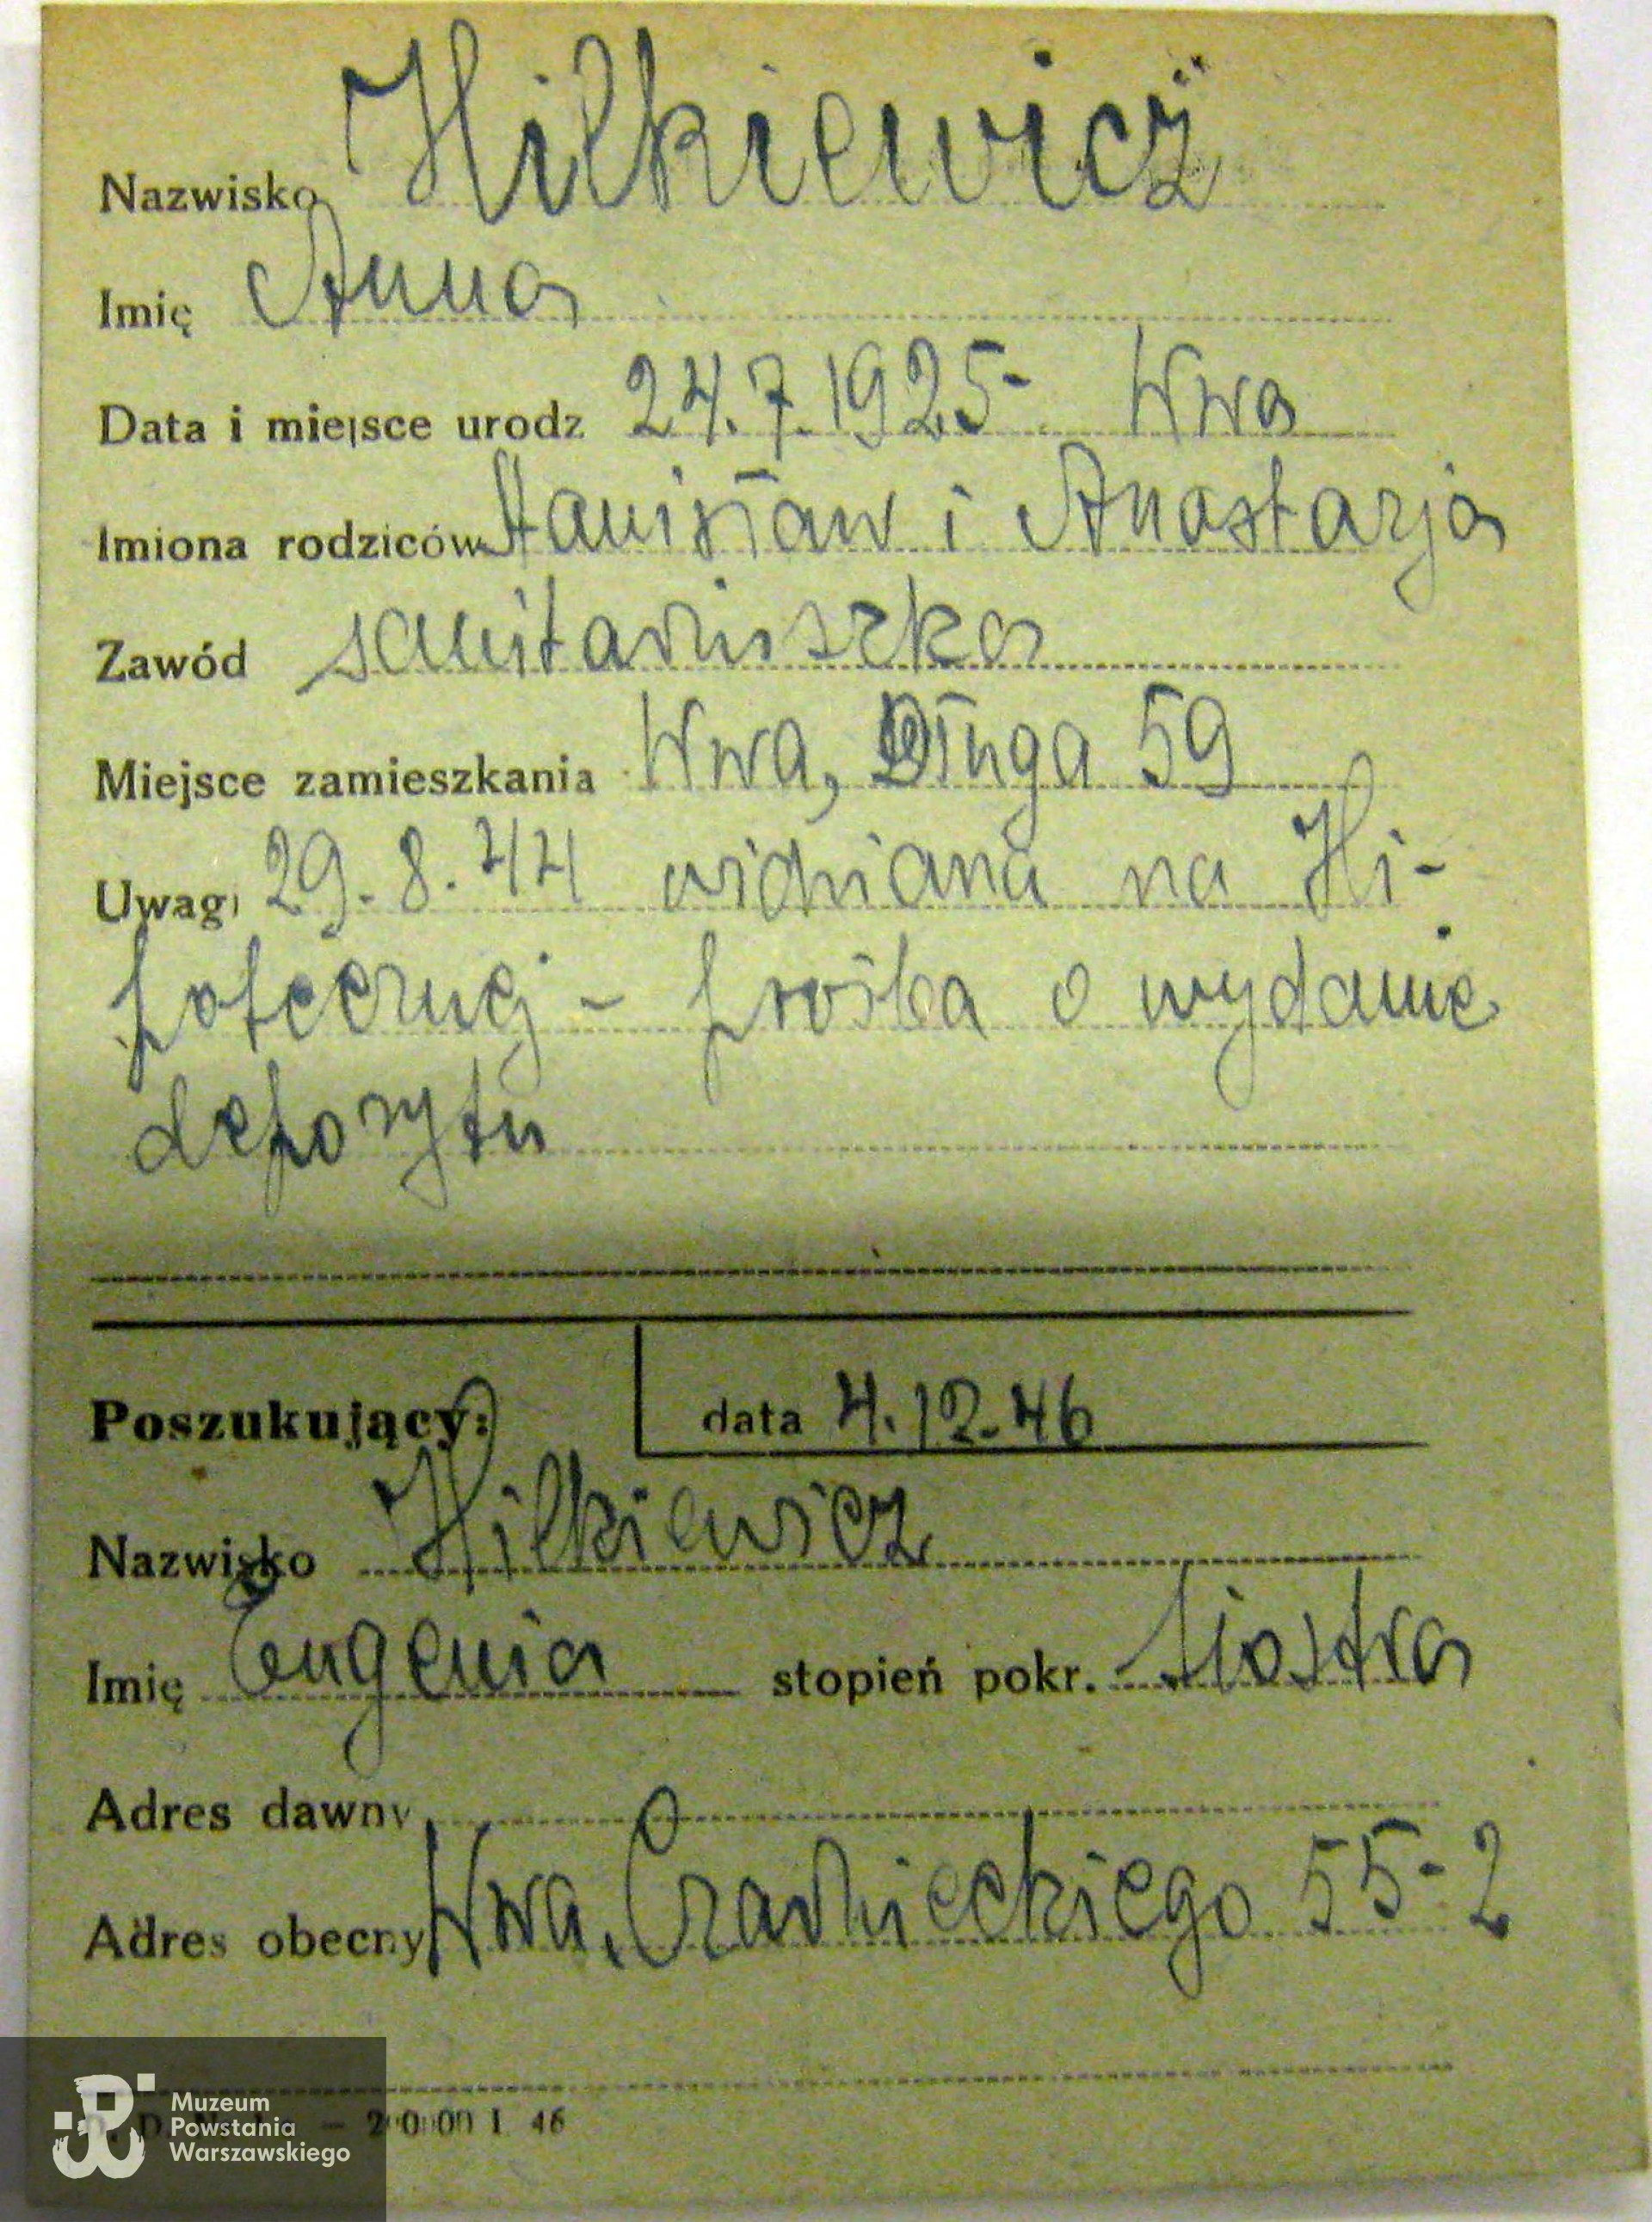 Nazwisko Hilkiewicz
Imię Anna
Data i miejsce urodz 24.7.1925- Wwa
Imiona rodziców Stanisław i Anastazja
Zawód sanitariuszka
Miejsce zamieszkania Wwa, Długa 59
Uwagi 29.8.44 widziana na Hi-
potecznej - prośba o wydanie
depozytu
Poszukujący: data 4.12.46
Nazwisko Hilkiewicz
Imię Eugenia stopień pokr. siostra
Adres dawny
Adres obecny Wwa, Czarnieckiego 55-2
46
Muzeum
Powstania
Warszawskiego